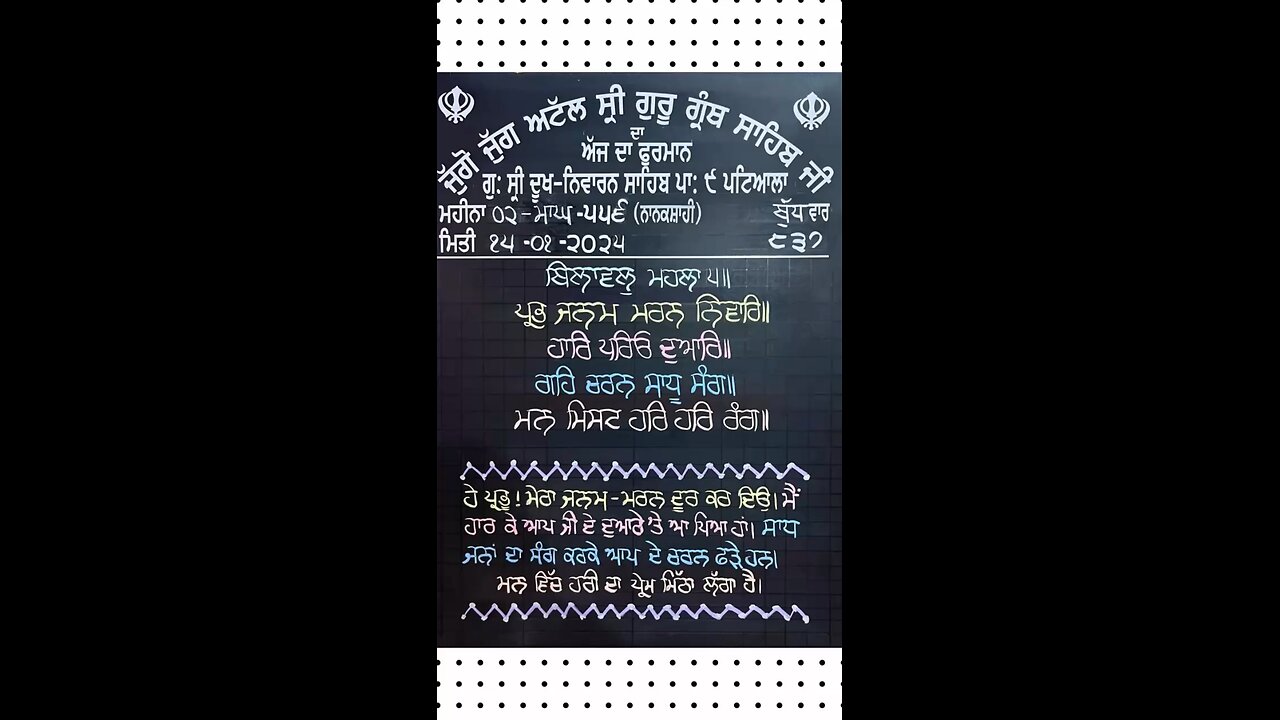 ਜੁੱਗੋ ਜੁੱਗ ਅਟੱਲ ਸ੍ਰੀ ਗੁਰੂ ਗ੍ਰੰਥ ਸਾਹਿਬ ਜੀ
ਦਾ
ਅੱਜ ਦਾ ਫੁਰਮਾਨ
ਗੁ: ਸ੍ਰੀ ਦੂਖ-ਨਿਵਾਰਨ ਸਾਹਿਬ ਪਾ: ੯ ਪਟਿਆਲਾ
ਮਹੀਨਾ ੦੨-ਮਾਘ-੫੫੬ (ਨਾਨਕਸ਼ਾਹੀ) ਬੁੱਧ ਵਾਰ
ਮਿਤੀ ੧੫-੦੧-੨੦੨੫ ੮੩੭
ਬਿਲਾਵਲੁ ਮਹਲਾ ੫॥
ਪ੍ਰਭ ਜਨਮ ਮਰਨ ਨਿਵਾਰਿ॥
ਹਾਰਿ ਪਰਿਓ ਦੁਆਰਿ॥
ਗਹਿ ਚਰਨ ਸਾਧੂ ਸੰਗ॥
ਮਨ ਮਿਸਟ ਹਰਿ ਹਰਿ ਰੰਗ॥
ਹੇ ਪ੍ਰਭੂ! ਮੇਰਾ ਜਨਮ-ਮਰਨ ਦੂਰ ਕਰ ਦਿਉ। ਮੈਂ
ਹਾਰ ਕੇ ਆਪ ਜੀ ਦੇ ਦੁਆਰੇ 'ਤੇ ਆ ਪਿਆ ਹਾਂ। ਸਾਧ
ਜਨਾਂ ਦਾ ਸੰਗ ਕਰਕੇ ਆਪ ਦੇ ਚਰਨ ਫੜੇ ਹਨ।
ਮਨ ਵਿੱਚ ਹਰੀ ਦਾ ਪ੍ਰੇਮ ਮਿੱਠਾ ਲੱਗਾ ਹੈ।